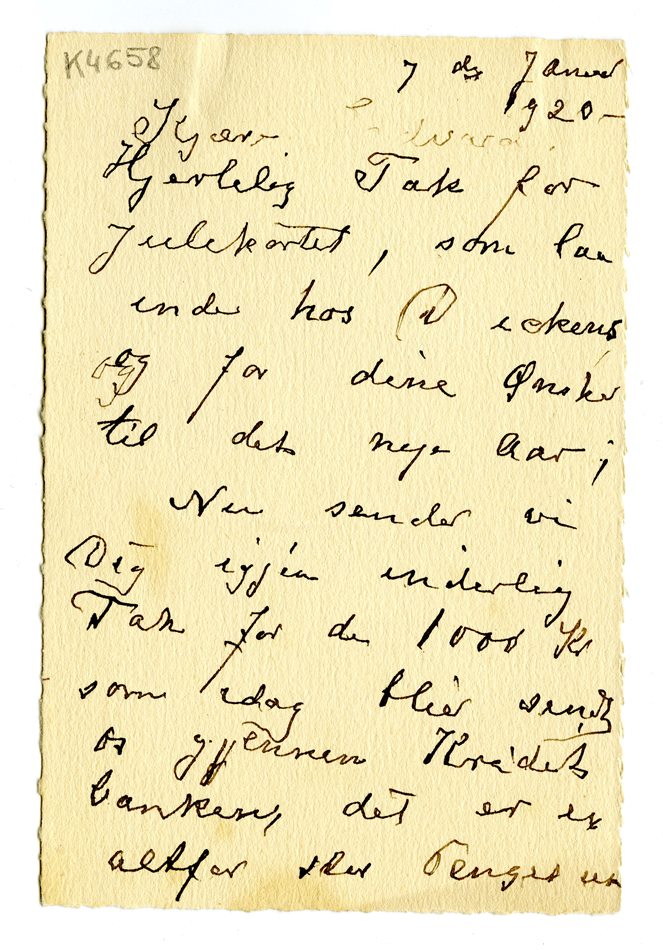 K4658
7 de Januar
1920-
Kjære Edvard!
Hjertelig Tak for
Julekortet, som laa
inde hos Dickens
og for dine Ønsker
til det nye Aar;
Nu sender vi
Dig igjen inderlig
Tak for de 1000 Kr
som idag blir sendt
os gjennem Kredit
banken, det er en
altfor stor Penges